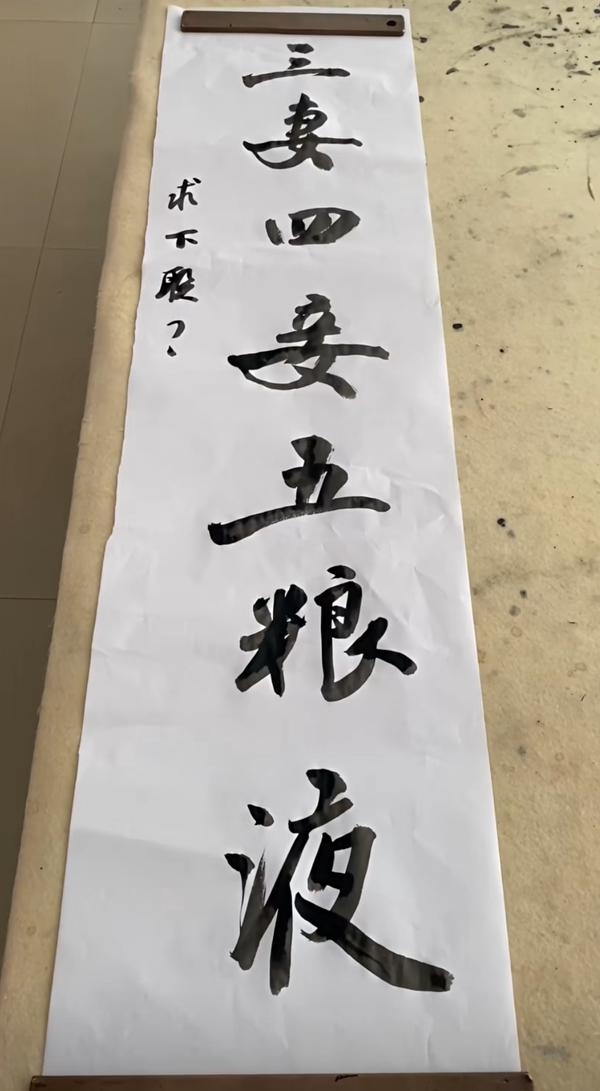 三妻四妾五粮液
求下联?